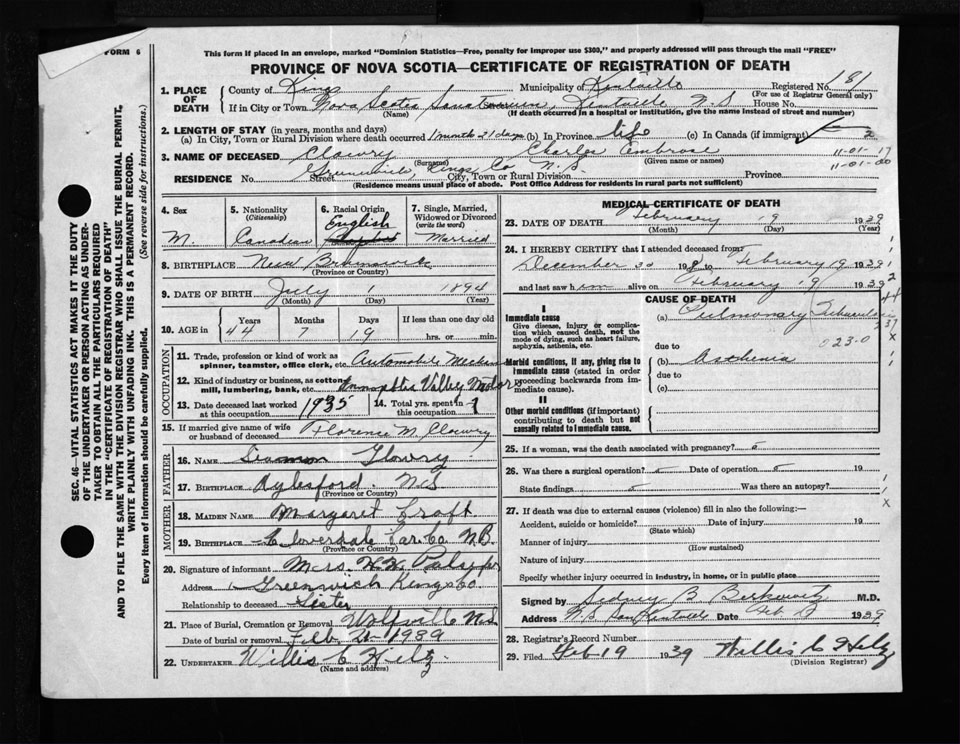 FORM 6
This form if placed in an envelope, marked "Dominion Statistics—Free, penalty for improper use $300," and properly addressed will pass through the mail "FREE"
PROVINCE OF NOVA SCOTIA—CERTIFICATE OF REGISTRATION OF DEATH
1. PLACE OF DEATH
County of Kings Municipality of Kentville Registered No. 181
(For use of Registrar General only)
If in City or Town Nova Scotia Sanatorium, Kentville N.S House No.
(Name) (If death occurred in a hospital or institution, give the name instead of street and number)
2. LENGTH OF STAY (in years, months and days)
(a) In City, Town or Rural Division where death occurred 1 month 21 days (b) In Province life (c) In Canada (if immigrant)
3. NAME OF DECEASED Charles Embrose 11-01-17
(Surname) (Given name or names) 11-01-00
RESIDENCE No. Street Greenwich, Kings Co N.S. City, Town or Rural Division Province
(Residence means usual place of abode. Post Office Address for residents in rural parts not sufficient)
4. Sex
M.
5. Nationality
(Citizenship)
Canadian
6. Racial Origin
English
7. Single, Married, Widowed or Divorced
(write the word)
Married
8. BIRTHPLACE New Brunswick
(Province or Country)
9. DATE OF BIRTH July 1 1894
(Month) (Day) (Year)
10. AGE in Years Months Days If less than one day old
44 7 19 hrs. or min.
OCCUPATION
11. Trade, profession or kind of work as spinner, teamster, office clerk, etc. Automobile
12. Kind of industry or business, as cotton mill, lumbering, bank, etc. Valley Motors
13. Date deceased last worked at this occupation 1935
14. Total yrs. spent in this occupation 1
15. If married give name of wife or husband of deceased Florence M.
FATHER
16. NAME
17. BIRTHPLACE Aylesford N.S
(Province or Country)
MOTHER
18. MAIDEN NAME Margaret Craft
19. BIRTHPLACE Cloverdale Car. Co N.B.
(Province or Country)
20. Signature of informant Mrs.
Address Greenwich Kings Co
Relationship to deceased Sister
21. Place of Burial, Cremation or Removal Wolfville N.S.
Date of burial or removal Feb. 21-1939
22. UNDERTAKER Willis C Hiltz
(Name and address)
MEDICAL CERTIFICATE OF DEATH
23. DATE OF DEATH February 19 1939
(Month) (Day) (Year)
24. I HEREBY CERTIFY that I attended deceased from
December 30 1938 to February 19 1939
and last saw him alive on February 19 1939
CAUSE OF DEATH
I
Immediate cause
Give disease, injury or complication which caused death, not the mode of dying, such as heart failure, asphyxia, asthenia, etc.
(a) Pulmonary Tuberculosis
due to
023.0
Morbid conditions, if any, giving rise to Immediate cause (stated in order proceeding backwards from immediate cause).
(b) Asthenia
due to
(c)
II
Other morbid conditions (if important) contributing to death but not causally related to immediate cause.
25. If a woman, was the death associated with pregnancy?
26. Was there a surgical operation? Date of operation 19
State findings Was there an autopsy?
27. If death was due to external causes (violence) fill in also the following:—
Accident, suicide or homicide? Date of injury 19
(State which)
Manner of injury
(How sustained)
Nature of injury
Specify whether injury occurred in industry, in home, or in public place
Signed by Sidney B Berkowitz M.D.
Address N.S. San Kentville Date Feb 1939
28. Registrar's Record Number
29. Filed Feb 19 1939 Willis C Hiltz
(Division Registrar)
SEC. 46—VITAL STATISTICS ACT MAKES IT THE DUTY OF THE UNDERTAKER OR PERSON ACTING AS UNDERTAKER TO OBTAIN ALL THE PARTICULARS REQUIRED IN THE "CERTIFICATE OF REGISTRATION OF DEATH" AND TO FILE THE SAME WITH THE DIVISION REGISTRAR WHO SHALL ISSUE THE BURIAL PERMIT.
WRITE PLAINLY WITH UNFADING INK. THIS IS A PERMANENT RECORD.
Every item of information should be carefully supplied. (See reverse side for instructions.)